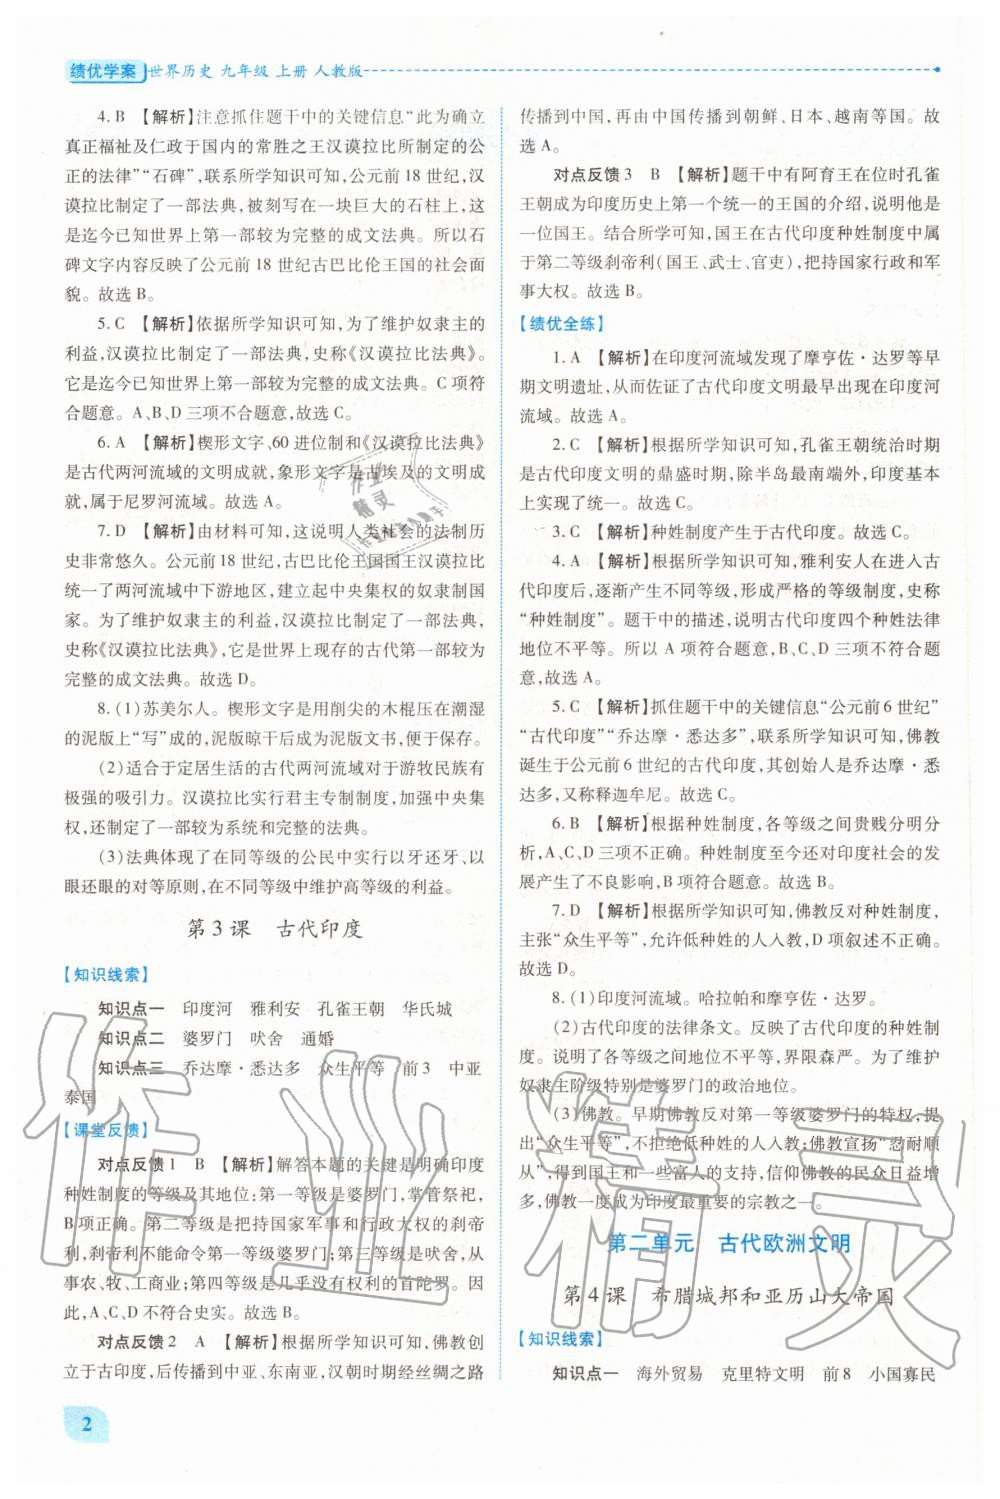 绩优学案 世界历史 九年级 上册 人教版
4. B 【解析】注意抓住题干中的关键信息“此为确立
真正福祉及仁政于国内的常胜之王汉谟拉比所制定的公
正的法律”“石碑”,联系所学知识可知,公元前 18 世纪,汉
谟拉比制定了一部法典,被刻写在一块巨大的石柱上,这
是迄今已知世界上第一部较为完整的成文法典。所以石
碑文字内容反映了公元前 18 世纪古巴比伦王国的社会面
貌。故选 B。
5. C 【解析】依据所学知识可知,为了维护奴隶主的
利益,汉谟拉比制定了一部法典,史称《汉谟拉比法典》。
它是迄今已知世界上第一部较为完整的成文法典。C 项符
合题意。A、B、D 三项不合题意,故选 C。
6. A 【解析】楔形文字、60 进位制和《汉谟拉比法典》
是古代两河流域的文明成就,象形文字是古埃及的文明成
就,属于尼罗河流域。故选 A。
7. D 【解析】由材料可知,这说明人类社会的法制历
史非常悠久。公元前 18 世纪,古巴比伦王国国王汉谟拉比
统一了两河流域中下游地区,建立起中央集权的奴隶制国
家。为了维护奴隶主的利益,汉谟拉比制定了一部法典,
史称《汉谟拉比法典》,它是世界上现存的古代第一部较为
完整的成文法典。故选 D。
8. (1)苏美尔人。楔形文字是用削尖的木棍压在潮湿
的泥版上“写”成的,泥版晾干后成为泥版文书,便于保存。
(2)适合于定居生活的古代两河流域对于游牧民族有
极强的吸引力。汉谟拉比实行君主专制制度,加强中央集
权,还制定了一部较为系统和完整的法典。
(3)法典体现了在同等级的公民中实行以牙还牙、以
眼还眼的对等原则,在不同等级中维护高等级的利益。
第 3 课 古代印度
【知识线索】
知识点一 印度河 雅利安 孔雀王朝 华氏城
知识点二 婆罗门 吠舍 通婚
知识点三 乔达摩·悉达多 众生平等 前 3 中亚
泰国
【课堂反馈】
对点反馈 1 B 【解析】解答本题的关键是明确印度
种姓制度的等级及其地位:第一等级是婆罗门,掌管祭祀,
B项正确。第二等级是把持国家军事和行政大权的刹帝
利,刹帝利不能命令第一等级的婆罗门;第三等级是吠舍,从
事农、牧、工商业;第四等级是几乎没有权利的首陀罗。因
此,A、C、D 不符合史实。故选 B。
对点反馈 2 A 【解析】根据所学知识可知,佛教创
立于古印度,后传播到中亚、东南亚,汉朝时期经丝绸之路
传播到中国,再由中国传播到朝鲜、日本、越南等国。故
选 A。
对点反馈 3 B 【解析】题干中有阿育王在位时孔雀
王朝成为印度历史上第一个统一的王国的介绍,说明他是
一位国王。结合所学可知,国王在古代印度种姓制度中属
于第二等级刹帝利(国王、武士、官吏),把持国家行政和军
事大权。故选 B。
【绩优全练】
1. A 【解析】在印度河流域发现了摩亨佐·达罗等早
期文明遗址,从而佐证了古代印度文明最早出现在印度河
流域。故选 A。
2. C 【解析】根据所学知识可知,孔雀王朝统治时期
是古代印度文明的鼎盛时期,除半岛最南端外,印度基本
上实现了统一。故选 C。
3. C 【解析】种姓制度产生于古代印度。故选 C。
4. A 【解析】根据所学知识可知,雅利安人在进入古
代印度后,逐渐产生不同等级,形成严格的等级制度,史称
“种姓制度”。题干中的描述,说明古代印度四个种姓法律
地位不平等。所以 A 项符合题意,B、C、D 三项不符合题
意,故选 A。
5. C 【解析】抓住题干中的关键信息“公元前 6 世纪”
“古代印度”“乔达摩·悉达多”,联系所学知识可知,佛教
诞生于公元前 6 世纪的古代印度,其创始人是乔达摩·悉
达多,又称释迦牟尼。故选 C。
6. B 【解析】根据种姓制度,各等级之间贵贱分明分
析,A、C、D 三项不正确。种姓制度至今还对印度社会的发
展产生了不良影响,B 项正确。故选 B。
7. D 【解析】根据所学知识可知,佛教反对种姓制度,
主张“众生平等”,允许低种姓的人入教,D 项叙述不正确。
故选 D。
8. (1)印度河流域。哈拉帕和摩亨佐·达罗。
(2)古代印度的法律条文。反映了古代印度的种姓制
度。说明了各等级之间地位不平等,界限森严。为了维护
奴隶主阶级特别是婆罗门的政治地位。
(3)佛教。早期佛教反对第一等级婆罗门的特权,提
出“众生平等”,不拒绝低种姓的人入教;佛教宣扬“忍耐顺
从”,得到国王和一些富人的支持,信仰佛教的民众日益增
多,佛教一度成为印度最重要的宗教之一。
第二单元 古代欧洲文明
第 4 课 希腊城邦和亚历山大帝国
【知识线索】
知识点一 海外贸易 克里特文明 前 8 小国寡民
2
作业精灵